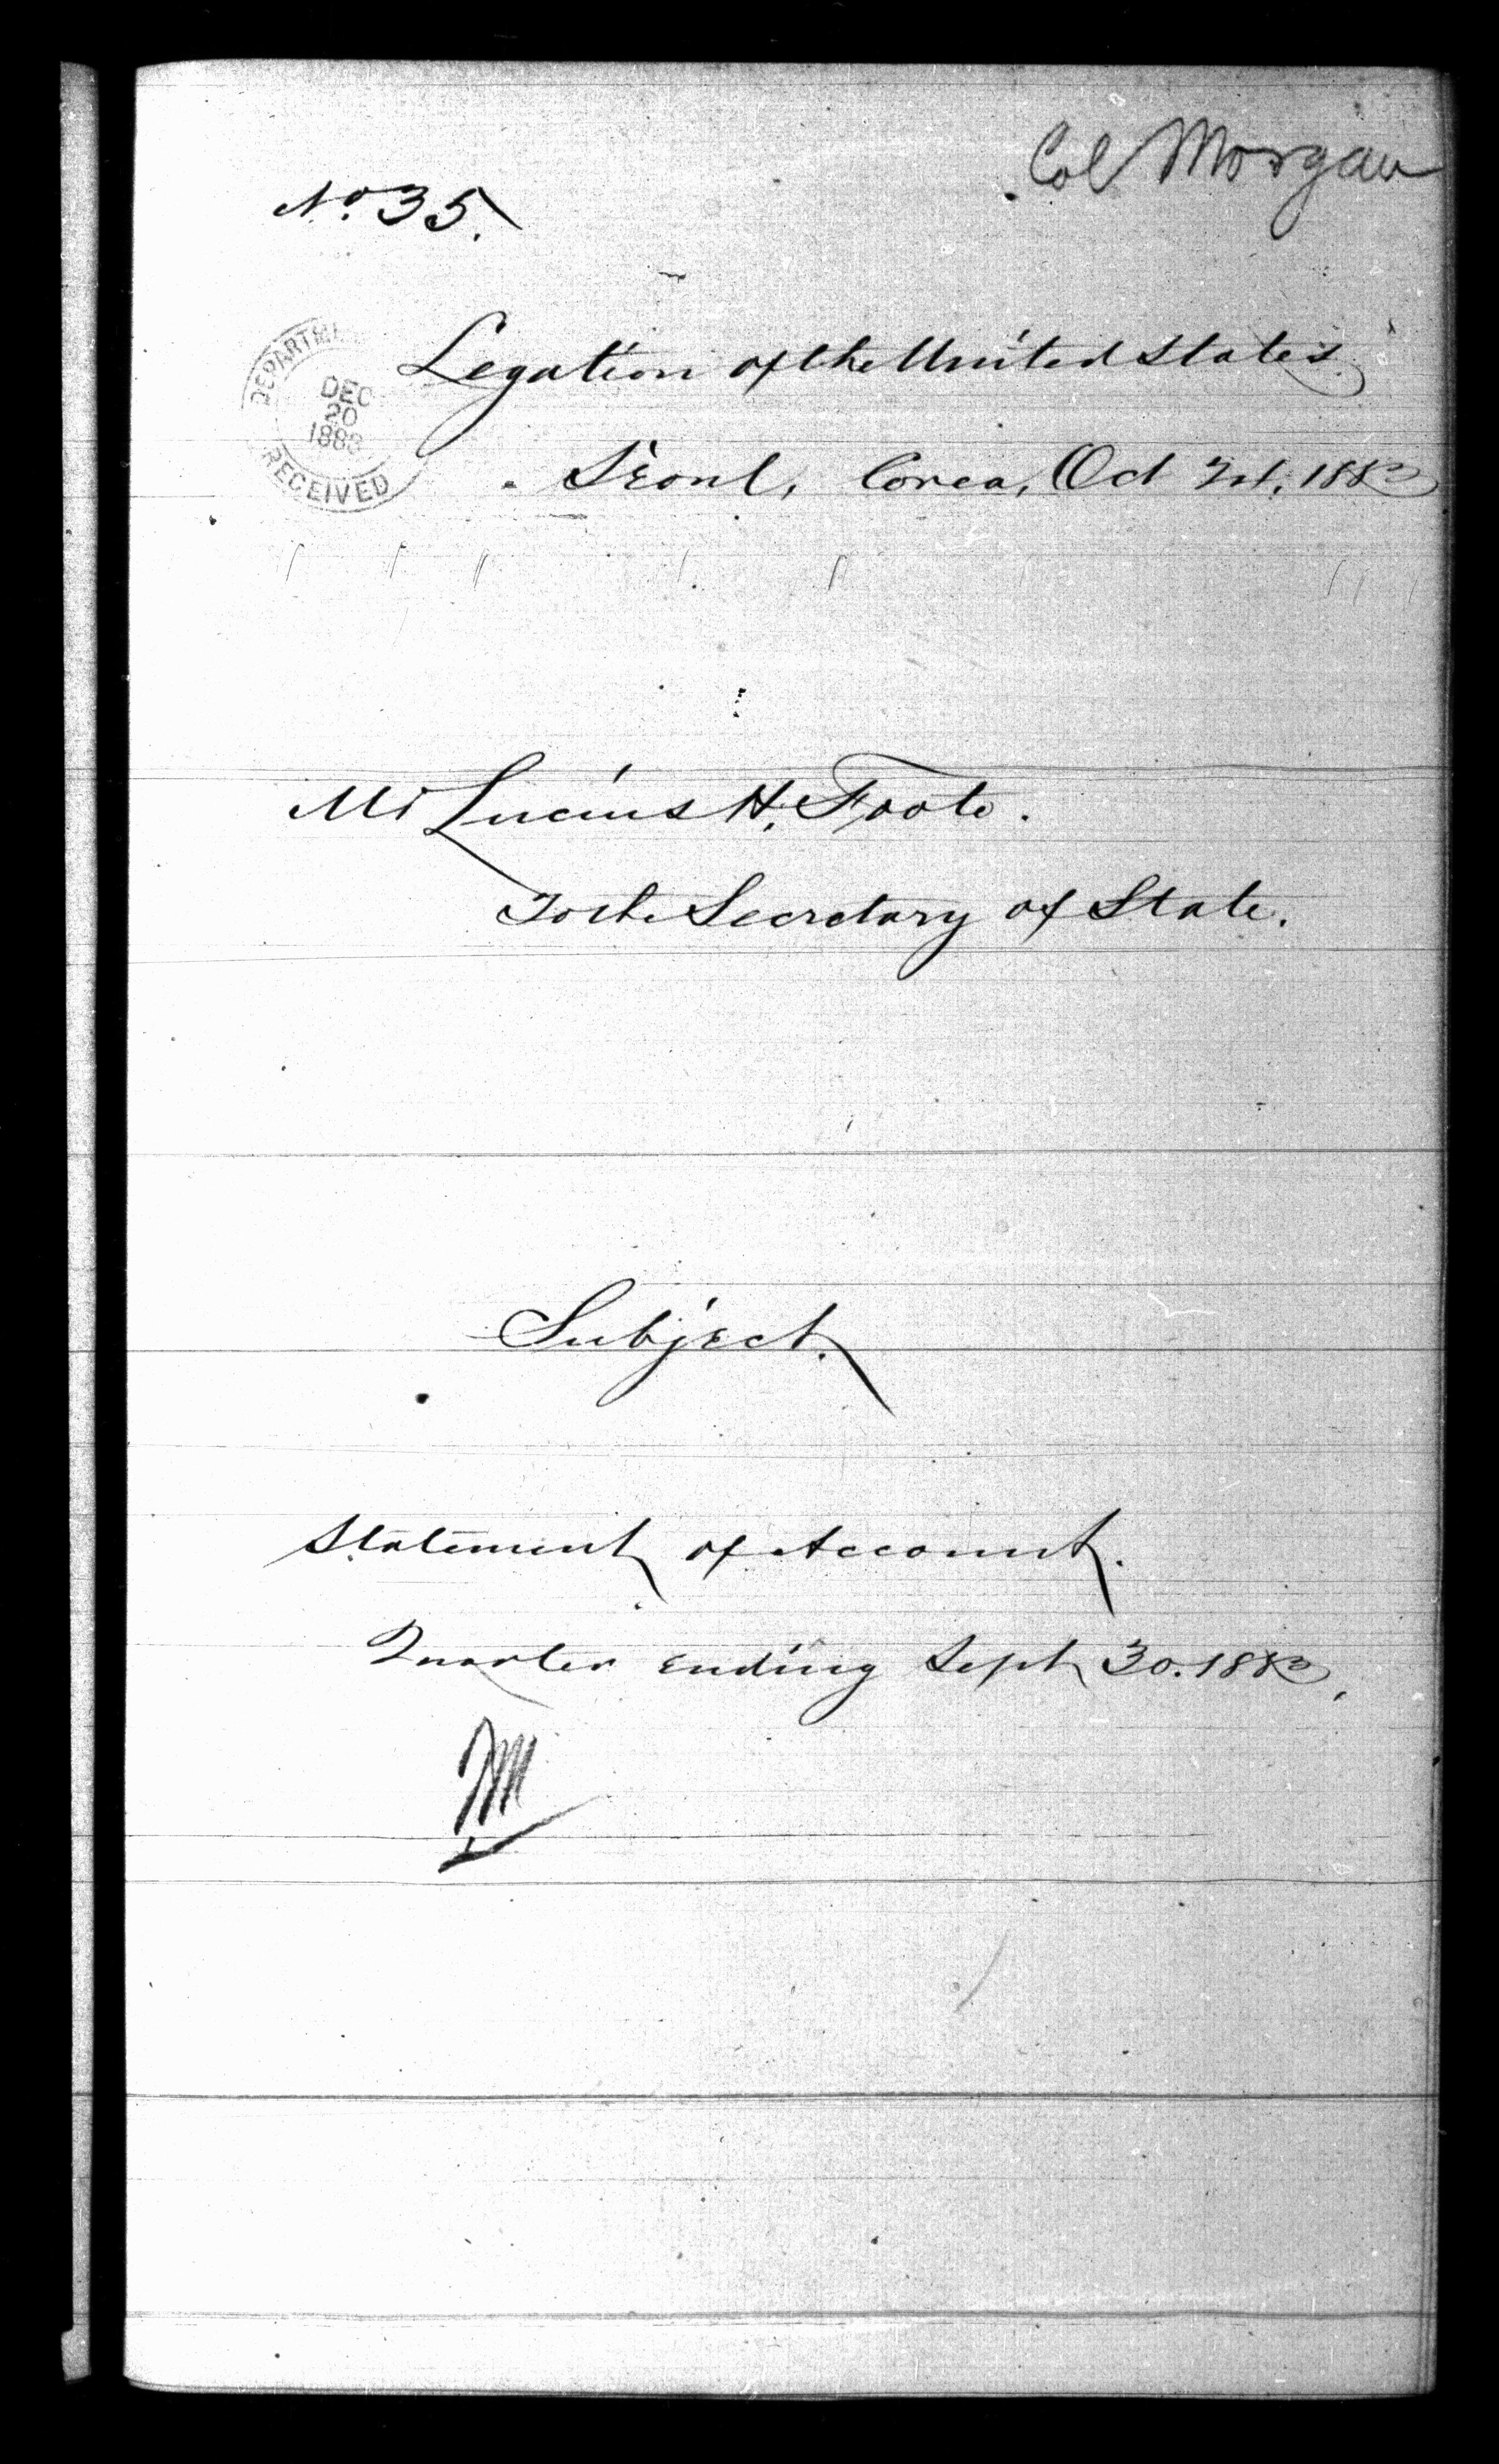 Col Morgan
No. 35.
DEPARTME
DEC
20
1883
RECEIVED
Legation of the United States.
Séoul, Corea, Oct 1883
Mr Lucius H. Foote.
To the Secretary of State.
Subject.
Statement of Account.
Quarter ending Sept 30. 1883.